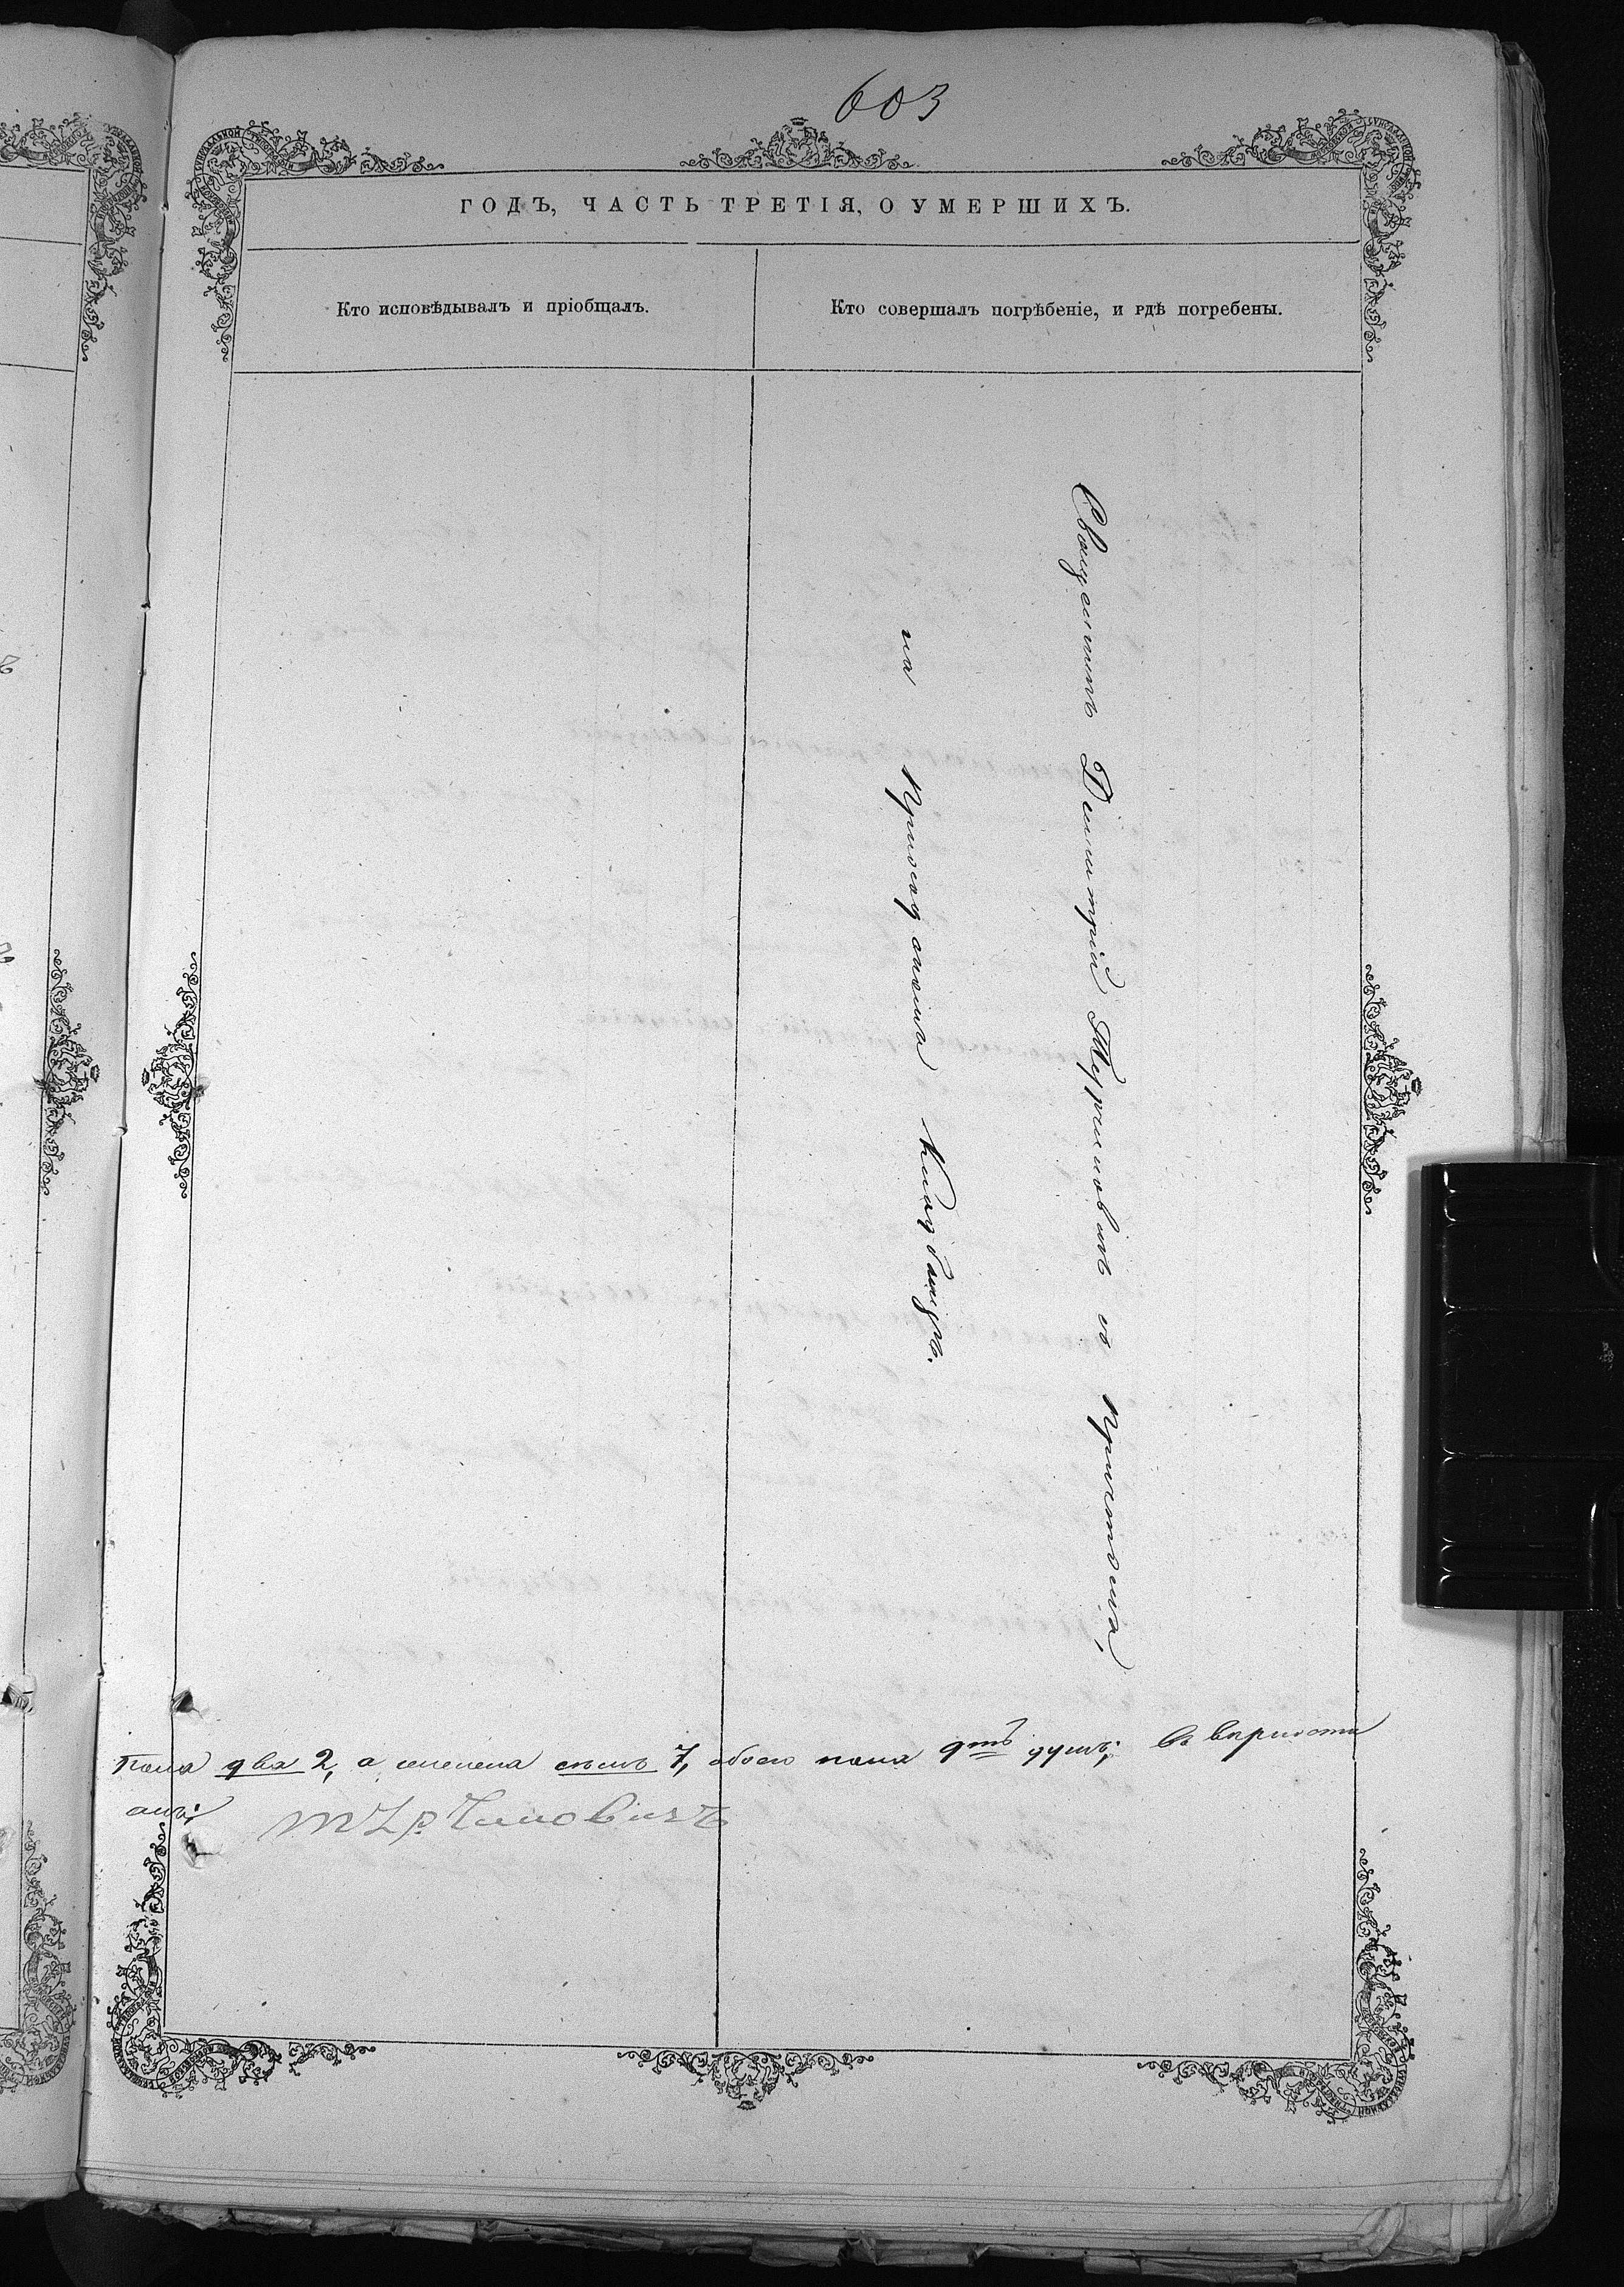 603
ГОДЪ, ЧАСТЬ ТРЕТІЯ, О УМЕРШИХЪ.
Кто исповѣдывалъ и пріобщалъ.
Кто совершалъ погрѣбеніе, и гдѣ погребены.
Священникъ Димитрій Турчиновичъ съ причтомъ,
на Приходскомъ Кладбищѣ.
пола два 2, а женска семь 7, обоего пола 9ть душъ; въ вѣрности
Турчиновичъ